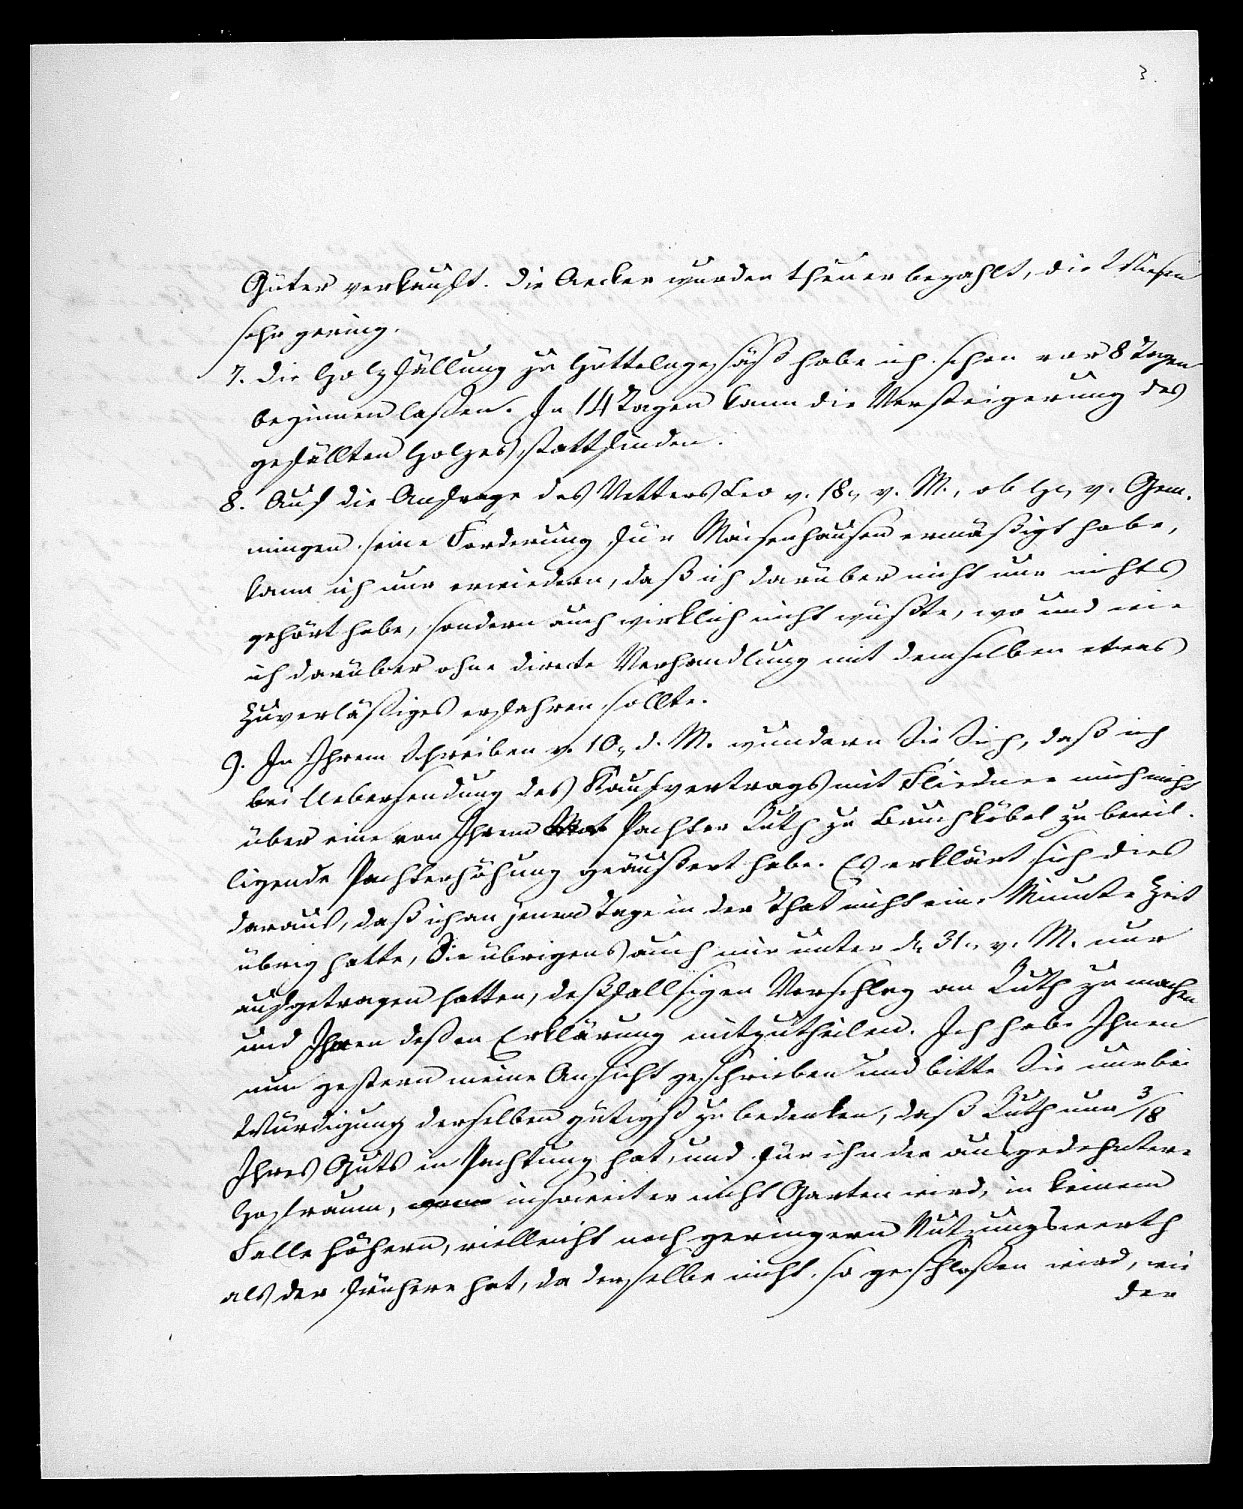 3.
Güter verkauft. Die Aecker wurden theuer bezahlt, die Wiesen
sehr gering.
7. Die Holzfällung zu Hüttelngesäß habe ich schon vor 8 Tagen
beginnen laßen. In 14 Tagen kann die Versteigerung des
gefällten Holzes stattfinden.
8. Auf die Anfrage des Vetters Leo v. 18. v. M., ob H. v. Gem-
mingen seine Forderung für Maisenhausen ermäßigt habe,
kann ich nur erwiedern, daß ich darüber nicht nur nichts
gehört habe, sondern auch wirklich nicht wüßte, wo und wie
ich darüber ohne directe Verhandlung mit demselben etwas
Zuverläßiges erfahren sollte.
9. In Ihrem Schreiben v. 10. d. M. wundern Sie Sich, daß ich
bei Uebersendung des Kaufvertrags mit Fliedner mich nicht
über eine von Ihrem Pachter Luth zu Bruchköbel zu bewil-
ligende Pachterhöhung geäußert habe. Es erklärt sich dies
daraus, daß ich an jenem Tage in der That nicht eine Minute Zeit
übrig hatte, Sie übrigens auch mir unter d. 31. v. M. nur
aufgetragen hatten, deßfallsigen Vorschlag an Luth zu machen
und Ihnen deßen Erklärung mitzutheilen. Ich habe Ihnen
nun gestern meine Ansicht geschrieben und bitte Sie nur bei
Würdigung derselben gütigst zu bedenken, daß Luth nur 3/18
Ihres Guts in Pachtung hat, und für ihn der ausgedehntere
Hofraum, insoweit er nicht Garten wird, in keinem
Falle höhern, vielleicht noch geringern Nutzungswerth
als der frühere hat, da derselbe nicht so geschloßen wird, wie
der